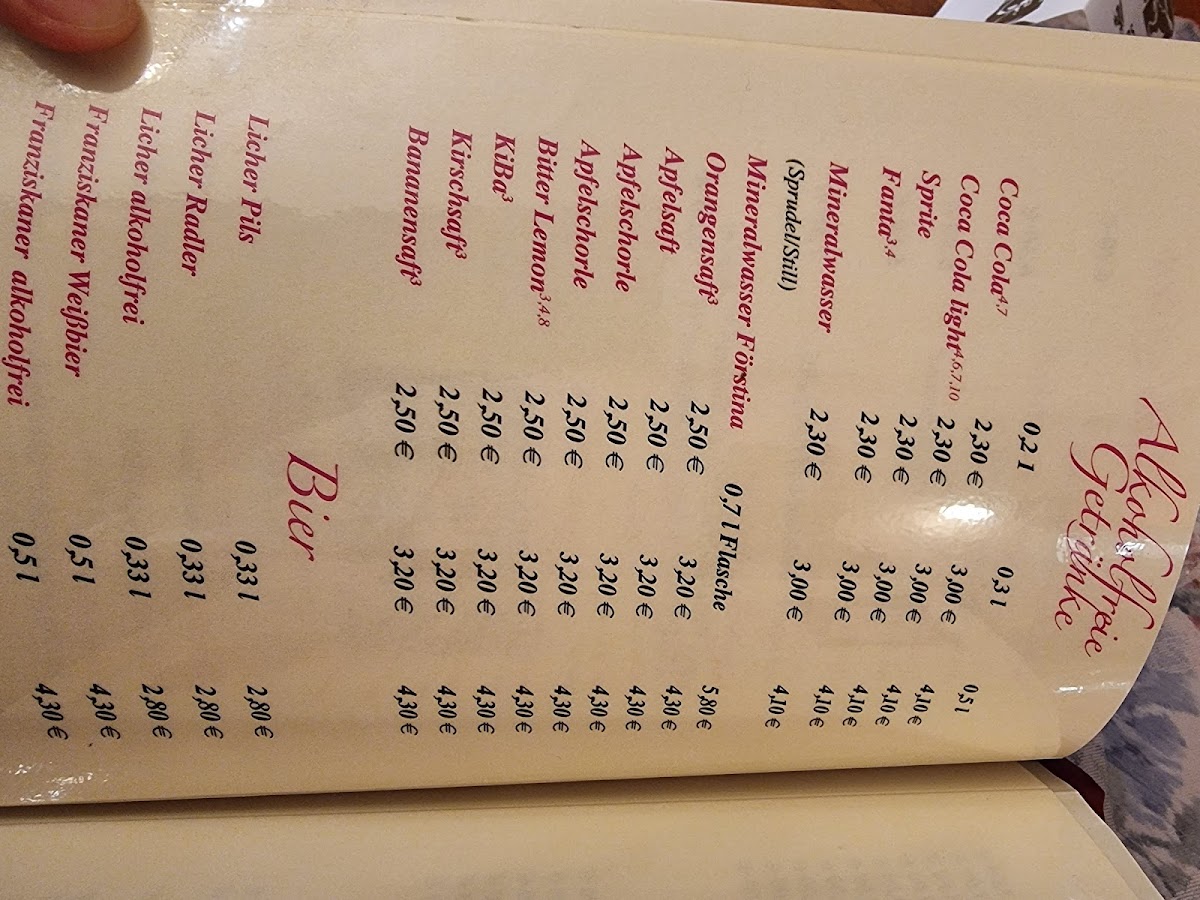 Alkoholfreie
Getränke
0,2 l 0,3 l 0,5 l
Coca Cola4,7 2,30 € 3,00 € 4,10 €
Coca Cola light4,6,7,10 2,30 € 3,00 € 4,10 €
Sprite 2,30 € 3,00 € 4,10 €
Fanta3,4 2,30 € 3,00 € 4,10 €
Mineralwasser 2,30 € 3,00 € 4,10 €
(Sprudel/Still)
Mineralwasser Förstina 0,7 l Flasche 5,80 €
Orangensaft3 2,50 € 3,20 € 4,30 €
Apfelsaft 2,50 € 3,20 € 4,30 €
Apfelschorle 2,50 € 3,20 € 4,30 €
Apfelschorle 2,50 € 3,20 € 4,30 €
Bitter Lemon3,4,8 2,50 € 3,20 € 4,30 €
KiBa3 2,50 € 3,20 € 4,30 €
Kirschsaft3 2,50 € 3,20 € 4,30 €
Bananensaft3 2,50 € 3,20 € 4,30 €
Bier
Licher Pils 0,33 l 2,80 €
Licher Radler 0,33 l 2,80 €
Licher alkoholfrei 0,33 l 2,80 €
Franziskaner Weißbier 0,5 l 4,30 €
Franziskaner alkoholfrei 0,5 l 4,30 €